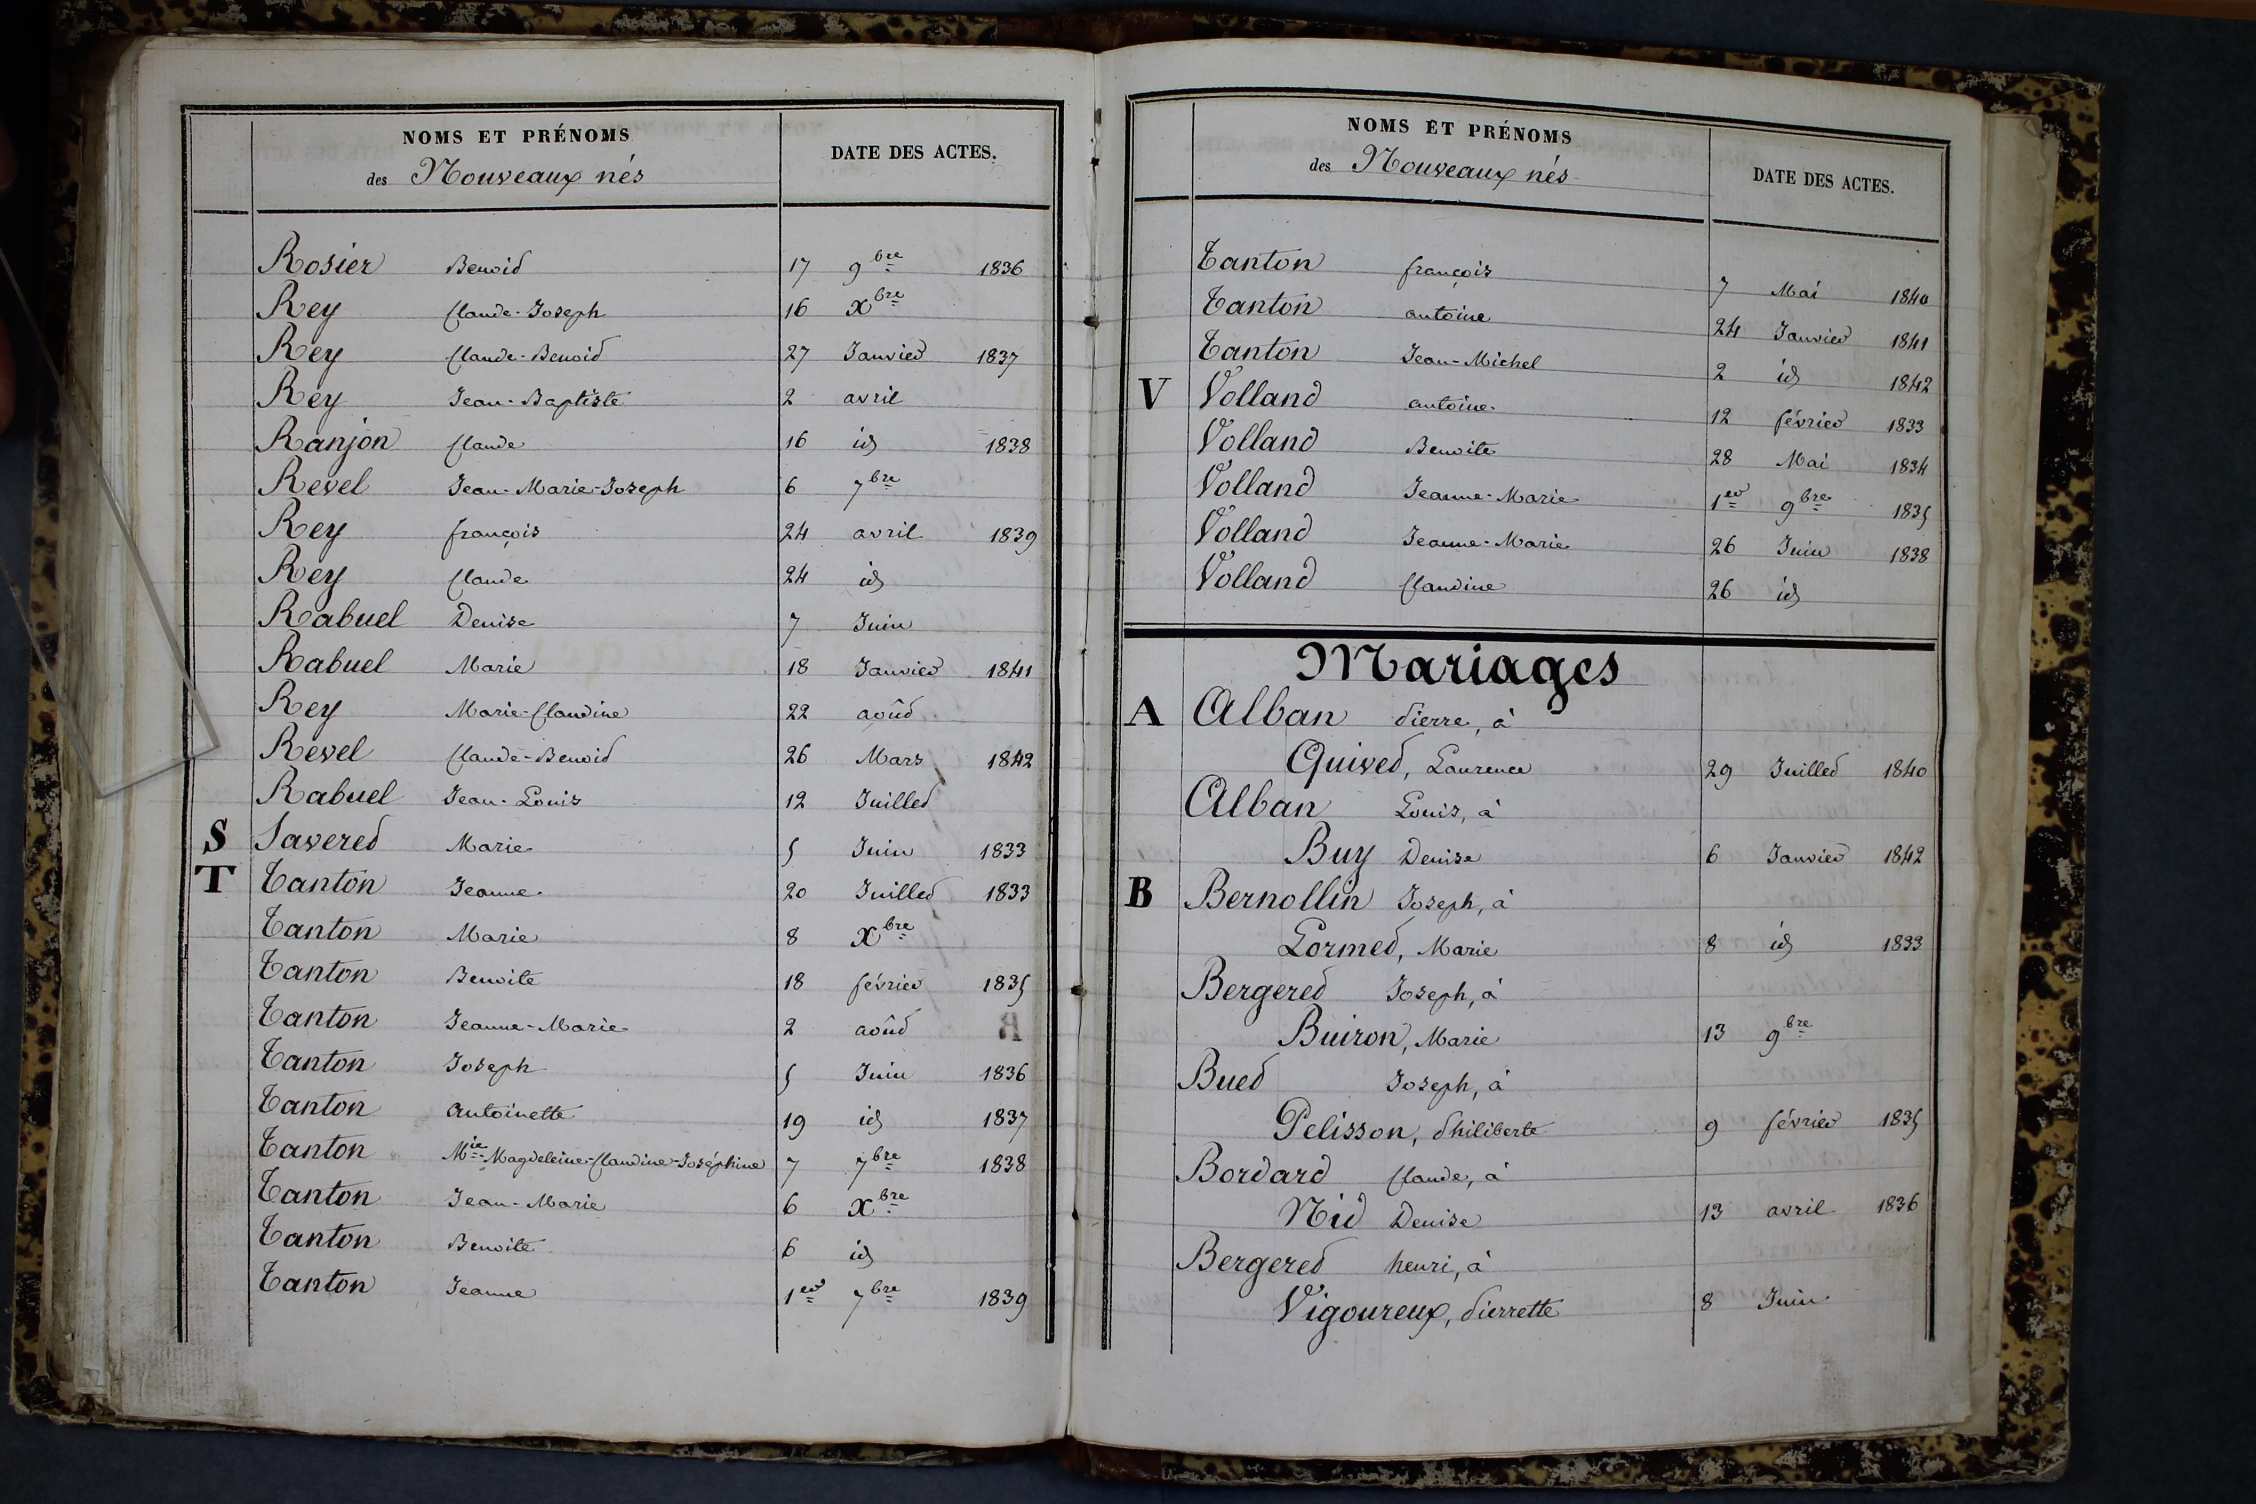 NOMS ET PRÉNOMS
des Nouveaux nés
DATE DES ACTES.
Rosier Benoit 17 9bre 1836
Rey Claude-Joseph 16 Xbre
Rey Claude-Benoit 27 Janvier 1837
Rey Jean-Baptiste 2 avril
Ranjon Claude 16 id 1838
Revel Jean-Marie-Joseph 6 7bre
Rey françois 24 avril 1839
Rey Claude 24 id
Rabuel Denise 7 Juin
Rabuel Marie 18 Janvier 1841
Rey Marie-Claudine 22 août
Revel Claude-Benoit 26 Mars 1842
Rabuel Jean-Louis 12 Juillet
S Saveret Marie 5 Juin 1833
T Tanton Jeanne 20 Juillet 1833
Tanton Marie 8 Xbre
Tanton Benoite 18 février 1835
Tanton Jeanne-Marie 2 août
Tanton Joseph 5 Juin 1836
Tanton Antoinette 19 id 1837
Tanton Mie-Magdeleine-Claudine-Joséphine 7 7bre 1838
Tanton Jean-Marie 6 Xbre
Tanton Benoite 6 id
Tanton Jeanne 1er 7bre 1839
NOMS ET PRÉNOMS
des Nouveaux nés
DATE DES ACTES.
Tanton françois 7 Mai 1840
Tanton antoine 24 Janvier 1841
Tanton Jean-Michel 2 id 1842
V Volland antoine 12 février 1833
Volland Benoite 28 Mai 1834
Volland Jeanne-Marie 1er 9bre 1835
Volland Jeanne-Marie 26 Juin 1838
Volland Claudine 26 id
Mariages
A Alban Pierre, à
Quivet, Laurence 29 Juillet 1840
Alban Louis, à
Buy Denise 6 Janvier 1842
B Bernollin Joseph, à
Lormet, Marie 8 id 1833
Bergeret Joseph, à
Buiron, Marie 13 9bre
Buet Joseph, à
Pelisson, Philiberte 9 février 1835
Bordard Claude, à
Nid Denise 13 avril 1836
Bergeret henri, à
Vigoureux, Pierrette 8 Juin